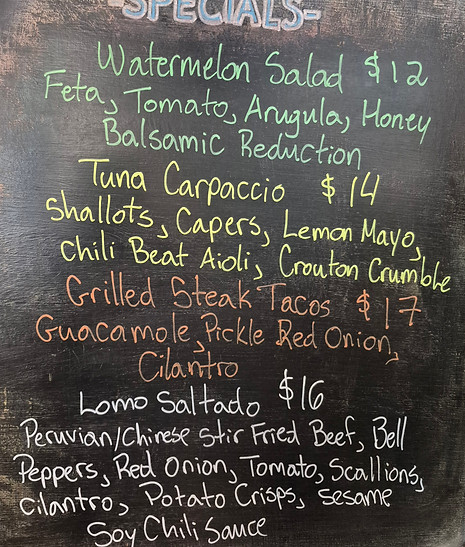 -SPECIALS-
Watermelon Salad $12
Feta, Tomato, Arugula, Honey
Balsamic Reduction
Tuna Carpaccio $14
Shallots, Capers, Lemon Mayo,
Chili Beat Aioli, Crouton Crumble
Grilled Steak Tacos $17
Guacamole, Pickle Red Onion,
Cilantro
Lomo Saltado $16
Peruvian/Chinese Stir Fried Beef, Bell
Peppers, Red Onion, Tomato, Scallions,
cilantro, Potato Crisps, sesame
Soy Chili Sauce